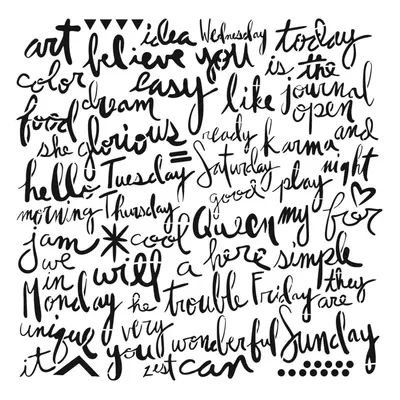 art idea Wednesday today
believe you is the
color dream easy like journal
food open
she glorious ready karma and
hello Tuesday Saturday night
good play
morning Thursday for
jam cool Queen my
we will a here simple
in
Monday he trouble Friday they
are
unique very
it you wonderful Sunday
zest can